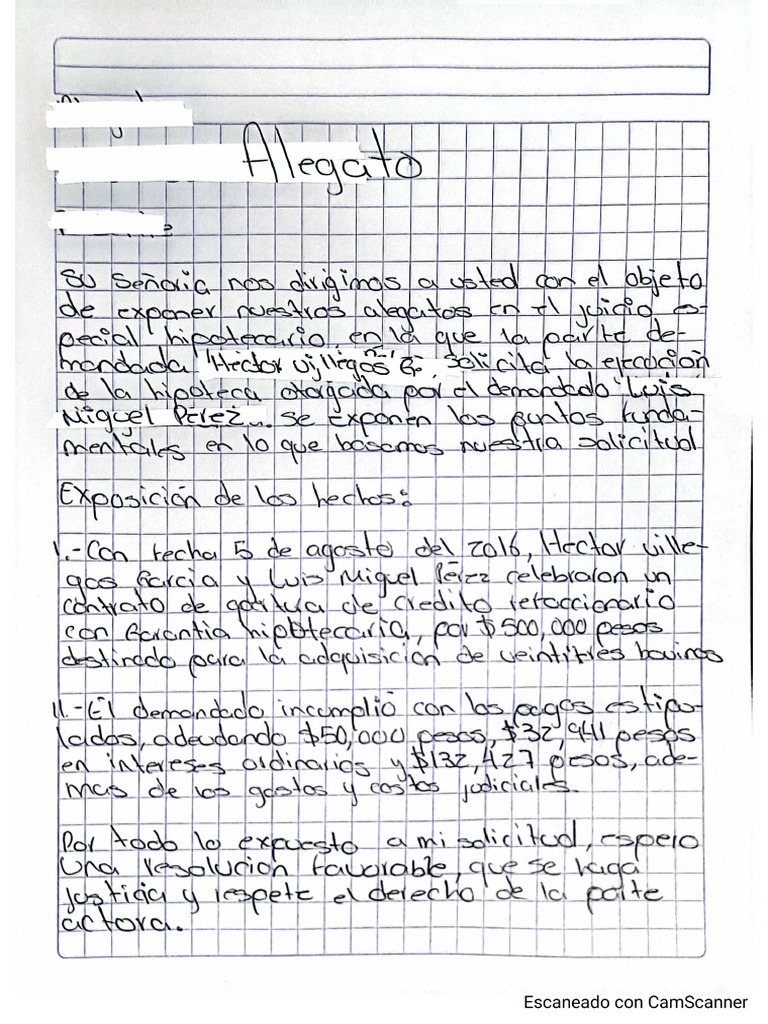 Alegato
Su Señoria nos dirigimos a usted con el objeto
de exponer nuestros alegatos en el juicio es-
pecial hipotecario, en la que la parte de-
mandada "Hector villegas G, solicita la ejecucion
de la hipoteca otorgada por el demandado "Luis
Miguel Pérez... se exponen los puntos funda-
mentales en lo que basamos nuestra solicitud
Exposición de los hechos:
I.-Con fecha 5 de agosto del 2016, Hector ville-
gas Garcia y Luis Miguel Pérez celebraron un
contrato de apertura de credito refaccionario
con Garantia hipotecaria, por $500,000 pesos
destinado para la adquisición de veintitres bovinos
II.-El demandado incumplió con los pagos estipu-
lados, adeudando $50,000 pesos, $32,941 pesos
en intereses ordinarios y $132,427 pesos, ade-
mas de los gastos y costos judiciales.
Por todo lo expuesto a mi solicitud, espero
una resolucion favorable, que se haga
justicia y respete el derecho de la parte
actora.
Escaneado con CamScanner